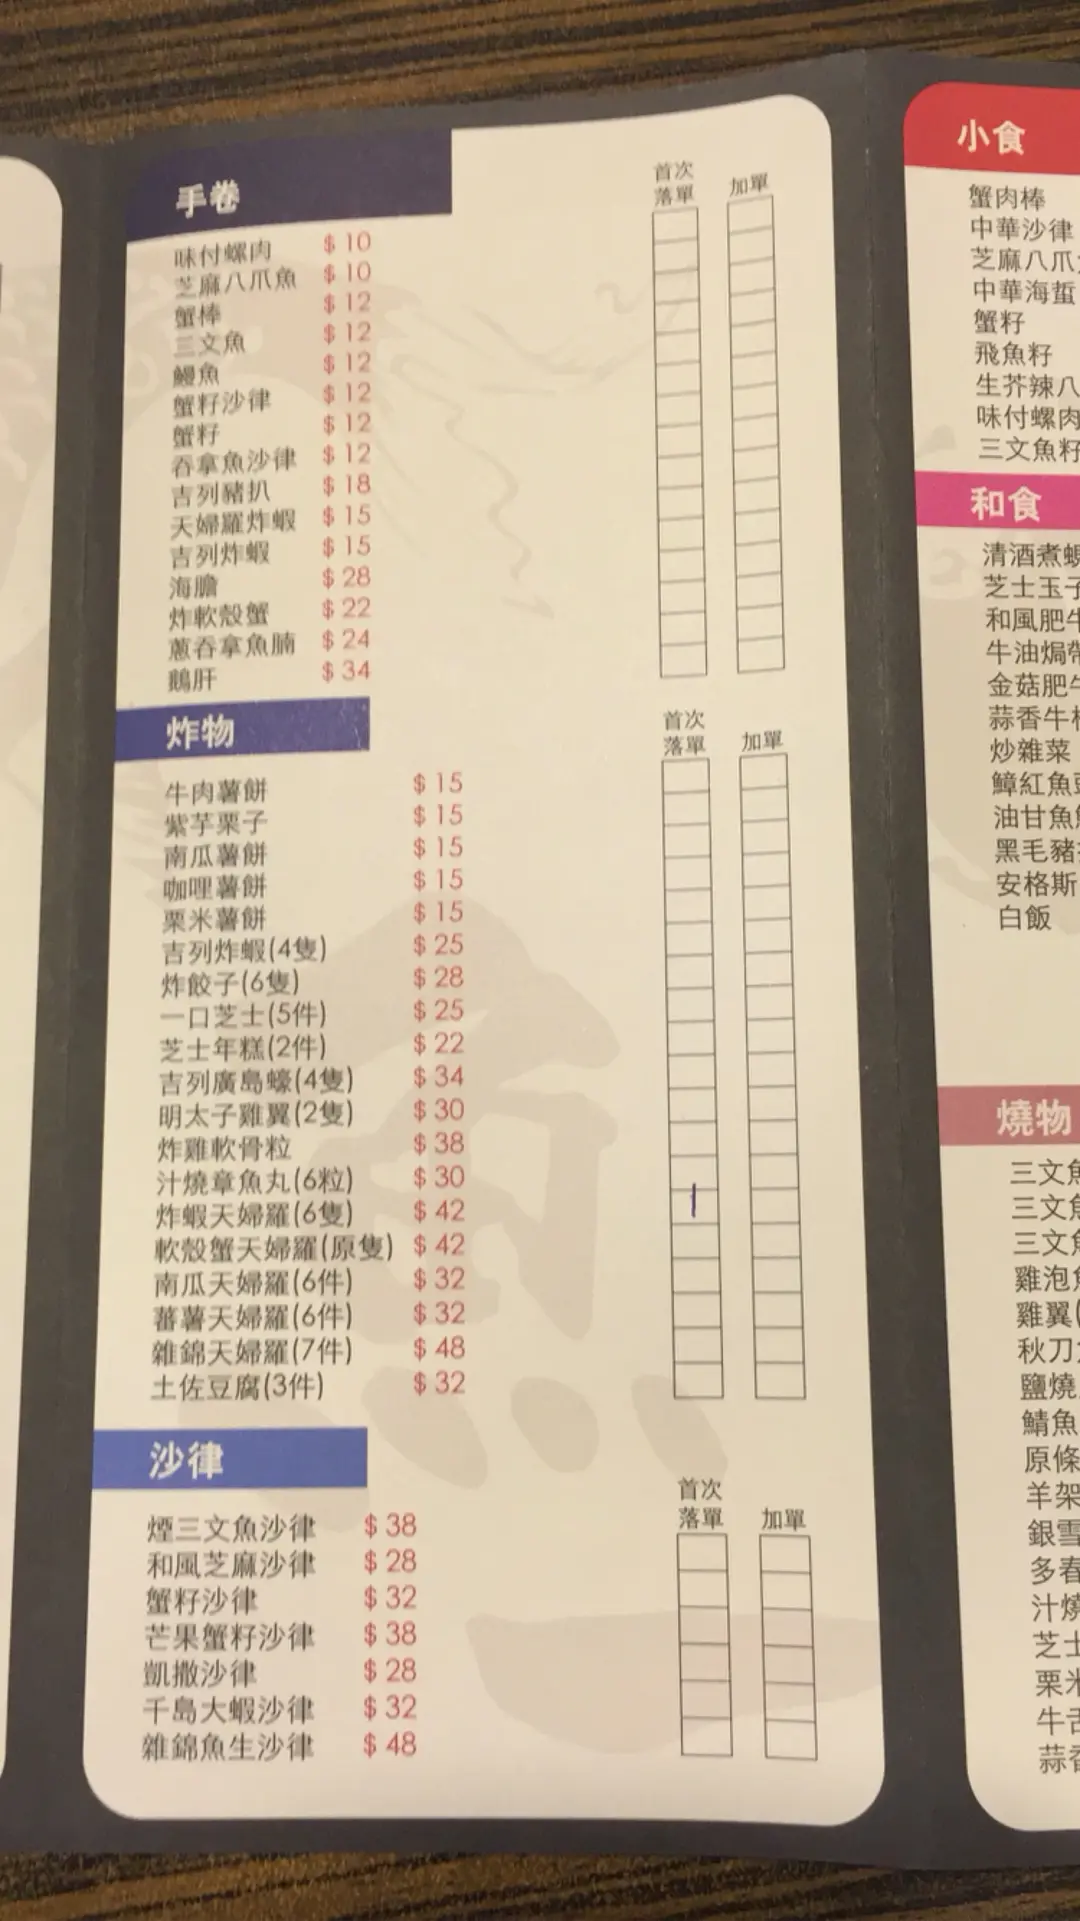 手卷
首次
落單 加單
味付螺肉 $ 10
芝麻八爪魚 $ 10
蟹棒 $ 12
三文魚 $ 12
鰻魚 $ 12
蟹籽沙律 $ 12
蟹籽 $ 12
吞拿魚沙律 $ 12
吉列豬扒 $ 18
天婦羅炸蝦 $ 15
吉列炸蝦 $ 15
海膽 $ 28
炸軟殼蟹 $ 22
蔥吞拿魚腩 $ 24
鵝肝 $ 34
炸物
首次
落單 加單
牛肉薯餅 $ 15
紫芋栗子 $ 15
南瓜薯餅 $ 15
咖哩薯餅 $ 15
粟米薯餅 $ 15
吉列炸蝦(4隻) $ 25
炸餃子(6隻) $ 28
一口芝士(5件) $ 25
芝士年糕(2件) $ 22
吉列廣島蠔(4隻) $ 34
明太子雞翼(2隻) $ 30
炸雞軟骨粒 $ 38
汁燒章魚丸(6粒) $ 30
炸蝦天婦羅(6隻) $ 42
軟殼蟹天婦羅(原隻) $ 42
南瓜天婦羅(6件) $ 32
蕃薯天婦羅(6件) $ 32
雜錦天婦羅(7件) $ 48
土佐豆腐(3件) $ 32
沙律
首次
落單 加單
煙三文魚沙律 $ 38
和風芝麻沙律 $ 28
蟹籽沙律 $ 32
芒果蟹籽沙律 $ 38
凱撒沙律 $ 28
千島大蝦沙律 $ 32
雜錦魚生沙律 $ 48
小食
蟹肉棒
中華沙律
芝麻八爪
中華海蜇
蟹籽
飛魚籽
生芥辣八
味付螺肉
三文魚籽
和食
清酒煮
芝士玉子
和風肥牛
牛油焗
金菇肥牛
蒜香牛
炒雜菜
鱆紅魚
油甘魚
黑毛豬
安格斯
白飯
燒物
三文魚
三文魚
三文魚
雞泡魚
雞翼(
秋刀
鹽燒
鯖魚
原條
羊架
銀雪
多春
汁燒
芝士
粟米
牛舌
蒜香